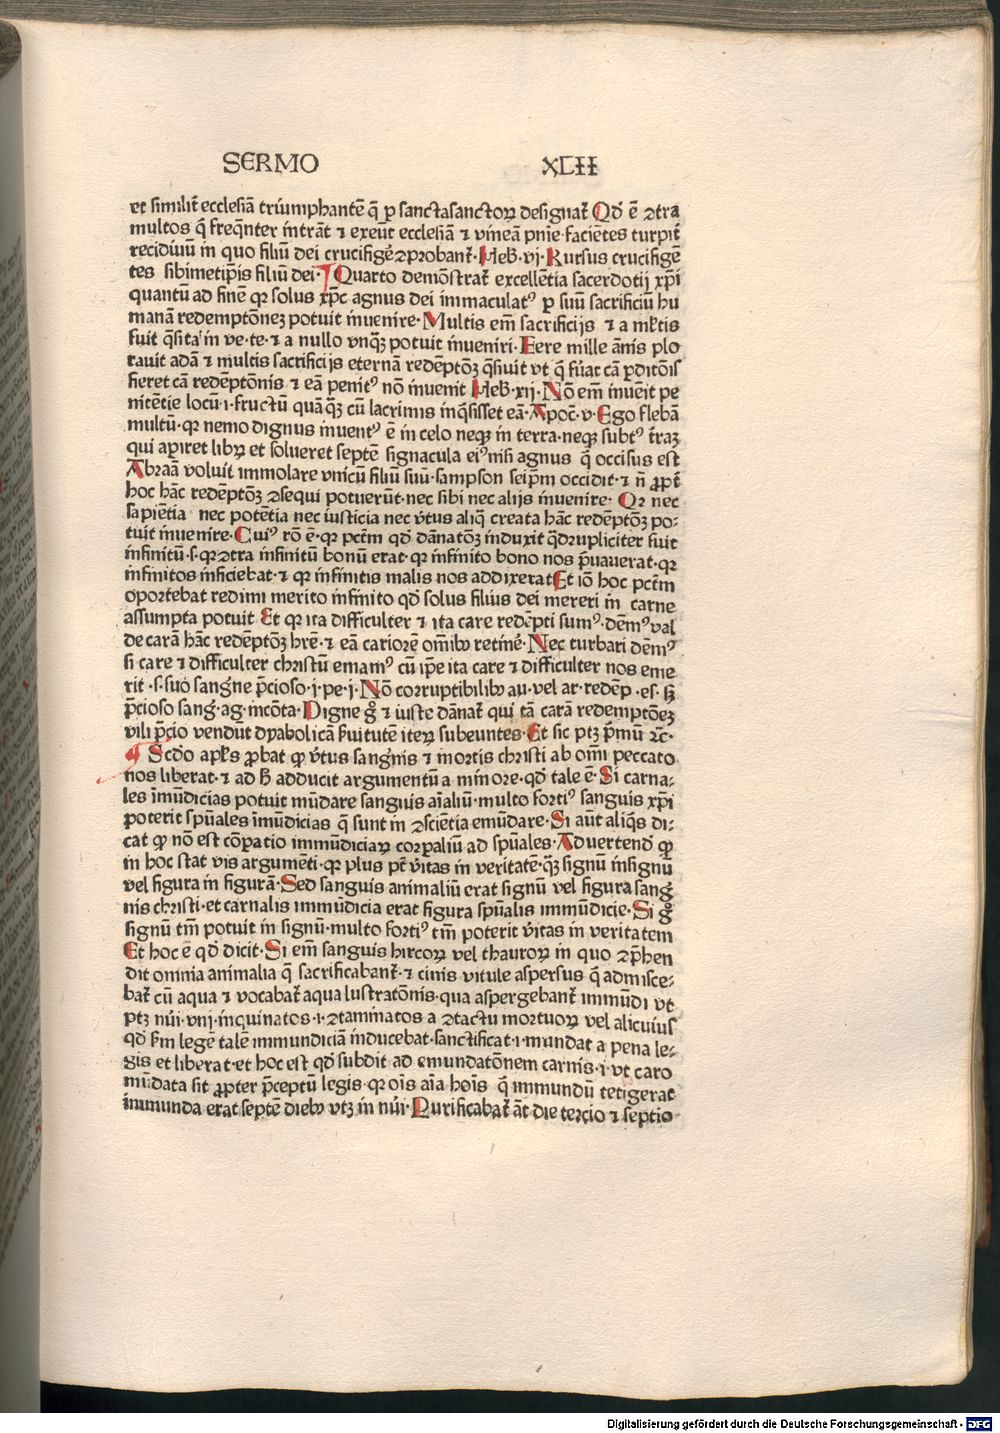 SERMO XLII
et similit̄ ecclesiā triumphantē q̄ ꝑ sanctasanctoꝝ designat᷑ Qd̓ ē ꝯtra
multos q̄ freq̄nter intrāt ⁊ exeūt ecclesiā ⁊ vineā pnīe faciētes turpit᷑
recidiuiū in quo filiū dei crucifigūt ꝯprobant᷑· Heb̓·vj· Rursus crucifigē
tes sibimetip̄is filiū dei· Quarto demōstrat᷑ excellētia sacerdotij xp̄i
quantū ad finē qꝛ solus xp̄c agnus dei immaculatꝰ ꝑ suū sacrificiū hu
manā redemptōnez potuit inuenire· Multis em̄ sacrificijs ⁊ a ml̓tis
fuit q̄sita in ve·te·⁊ a nullo vnqꝫ potuit inueniri· Fere mille ānis plo
rauit adā ⁊ multis sacrificijs eternā redēptōꝫ q̄siuit vt q̄ fūat cā ꝑditōis
fieret cā redēptōnis ⁊ eā penitꝰ nō inuenit Heb̓·xij· Nō em̄ inueīt pe
nitētie locū·i·fructū quāqꝫ cū lacrimis inq̄sisset eā· Apoc̄·v· Ego flebā
multū·qꝛ nemo dignus inuentꝰ ē in celo neqꝫ in terra·neqꝫ subtꝰ t̄raꝫ
qui aperiret libꝝ et solueret septē signacula eiꝰ nisi agnus q̄ occisus est
Abraā voluit immolare vnicū filiū suū·sampson seip̄m occidit·⁊ n̄ ꝓpt᷑
hoc hāc redēptōꝫ ꝯsequi potuerūt·nec sibi nec alijs inuenire· Qꝛ nec
sapiētia nec potētia nec iusticia nec v̓tus aliq̄ creata hāc redēptōꝫ po-
tuit inuenire· Cuiꝰ rō ē·qꝛ pctm̄ qd̓ dānatōꝫ induxit q̄drupliciter fuit
infinitū·s·qꝛ ꝯtra infinitū bonū erat·qꝛ infinito bono nos p̄uauerat·qꝛ
infinitos inficiebat·⁊ qꝛ infinitis malis nos addixerat Et iō hoc pctm̄
oportebat redimi merito infinito qd̓ solus filius dei mereri in carne
assumpta potuit Et qꝛ ita difficulter ⁊ ita care redēpti sumꝰ·dēmꝰ val
de carā hāc redēptōꝫ hr̄e·⁊ eā cariorē om̄ibꝰ retinē· Nec turbari dēmꝰ
si care ⁊ difficulter christū emamꝰ cū ip̄e ita care ⁊ difficulter nos eme
rit·s·suo sangn̄e p̄cioso·j·pe·j· Nō corruptibilibꝰ au·vel ar·redēp·es·sꝫ
p̄cioso sang̓·ag·incōta· Digne gͦ ⁊ iuste dānat᷑ qui tā carā redemptōeꝫ
vili p̄cio vendūt dyabolicā ẜuitutē iteꝝ subeuntes· Et sic ptꝫ p̄mū ⁊c̄·
Scd̓o apl̓s ꝓbat ꝙ v̓tus sangn̄is ⁊ mortis christi ab om̄i peccato
nos liberat·⁊ ad h̄ adducit argumentū a minore·qd̓ tale ē· Si carna-
les īmūdicias potuit mūdare sanguis aīaliū·multo fortiꝰ sanguis xp̄i
poterit spūales īmūdicias q̄ sunt in ꝯsciētia emūdare· Si aūt aliq̄s di-
cat ꝙ nō est cōpatio immūdiciaꝝ corꝑaliū ad spūales· Aduertend̓ ꝙ
in hoc stat vis argumēti·qꝛ plus pt̄ v̓itas in veritatē·qꝫ signū in signū
vel figura in figurā· Sed sanguis animaliū erat signū vel figura sang̓
nis christi·et carnalis immūdicia erat figura spūalis immūdicie· Si gͦ
signū tm̄ potuit in signū·multo fortiꝰ tm̄ poterit v̓itas in veritatem
Et hoc ē qd̓ dicit· Si em̄ sanguis hircoꝝ vel thauroꝝ in quo ꝯp̄hen
dit omnia animalia q̄ sacrificabant᷑·⁊ cinis vitule aspersus q̄ admisce-
bat᷑ cū aqua ⁊ vocabat᷑ aqua lustratōnis·qua aspergebant᷑ immūdi vt
ptꝫ nūi·vnj·inquinatos·i·ꝯtaminatos a ꝯtactu mortuoꝝ vel alicuius
qd̓ ẜm legē talē immundiciā inducebat·sanctificat·i·mundat a pena le-
gis et liberat·et hoc est qd̓ subdit ad emundatōnem carnis·i·vt caro
mūdata sit ꝓpter p̄ceptū legis·qꝛ oīs aīa hoīs q̄ immundū tetigerat
immunda erat septē diebꝰ vtꝫ in nūi· Purificabat᷑ āt die tercio ⁊ septīo
Digitalisierung gefördert durch die Deutsche Forschungsgemeinschaft - DFG